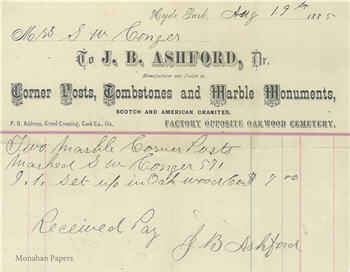 Hyde Park, Aug 19th 1885
Mrs S W Conger
To J. B. ASHFORD, Dr.
Manufacturer and Dealer in
Corner Posts, Tombstones and Marble Monuments,
SCOTCH AND AMERICAN GRANITES,
P. O. Address, Grand Crossing, Cook Co., Ills. FACTORY OPPOSITE OAKWOOD CEMETERY.
Two Marble Corner Posts
Marked S W Conger 571
Set up in Oakwood Cem $ 7 00
Received Pay
J B Ashford
Monahan Papers